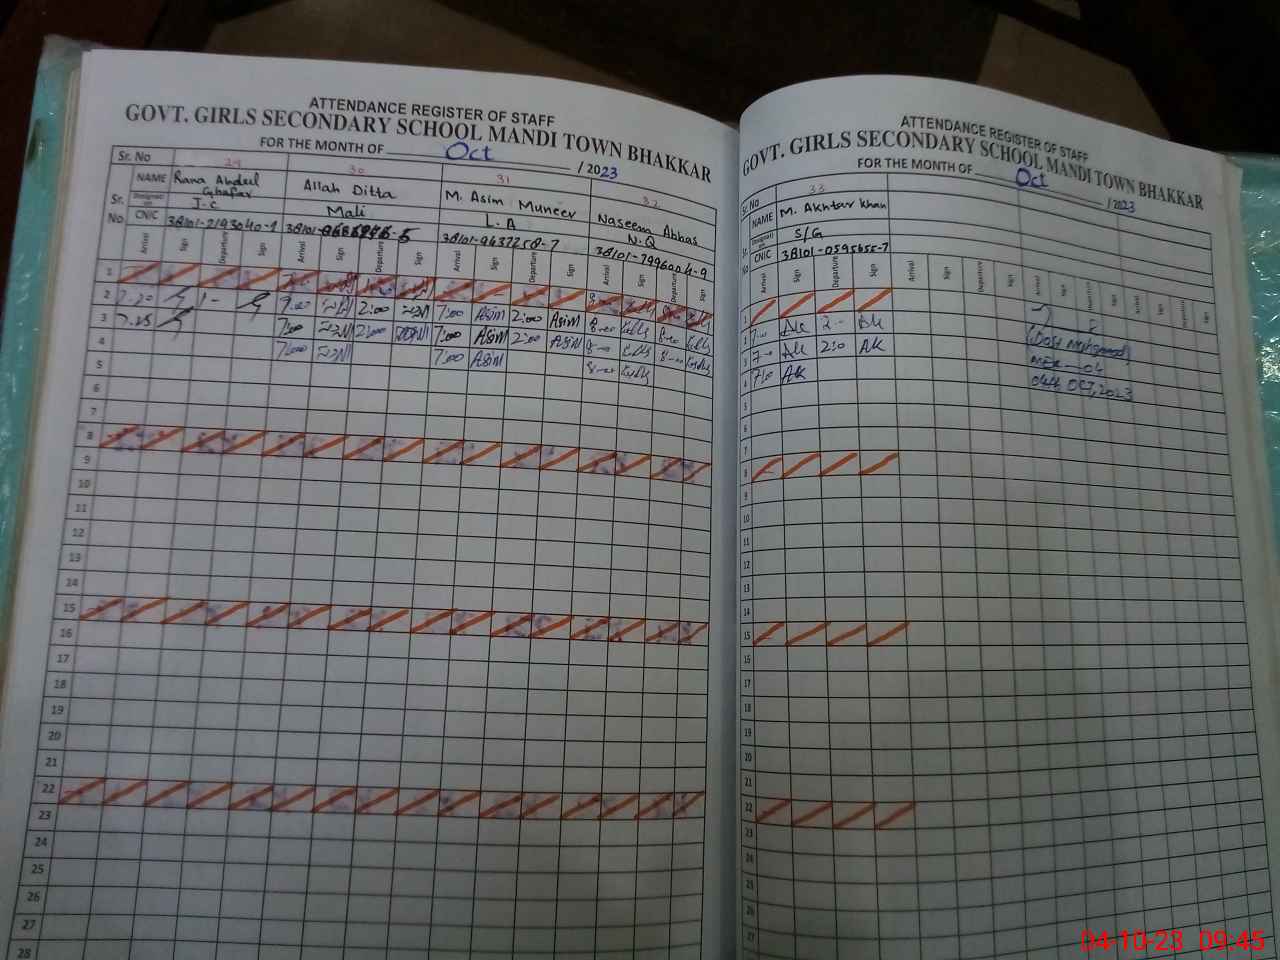 ATTENDANCE REGISTER OF STAFF
GOVT. GIRLS SECONDARY SCHOOL MANDI TOWN BHAKKAR
FOR THE MONTH OF Oct / 2023
Sr. No 29 30 31 32
NAME Rana Abdeel Ghafar Allah Ditta M. Asim Muneer Naseem Abbas
Sr. No Designation J.C Mali L.A N.Q
CNIC 38101-2193040-1 38101- 38101-9637258-7 38101-7996904-9
Arrival Sign Departure Sign Arrival Sign Departure Sign Arrival Sign Departure Sign Arrival Sign Departure Sign
1
2 7.20 1- 9:00 2:00 7:00 Asim 2:00 Asim 8-00 8-00
3 7.25 7:00 2:00 7:00 Asim 2:00 Asim 8-00 8-00
4 7:00 7:00 Asim 8-00
5
6
7
8
9
10
11
12
13
14
15
16
17
18
19
20
21
22
23
24
25
26
27
28
ATTENDANCE REGISTER OF STAFF
GOVT. GIRLS SECONDARY SCHOOL MANDI TOWN BHAKKAR
FOR THE MONTH OF Oct / 2023
Sr. No 33
NAME M. Akhtar Khan
Designation S/G
CNIC 38101-0595655-7
Arrival Sign Departure Sign Arrival Sign Departure Sign Arrival Sign Departure Sign Arrival Sign Departure Sign
1
2 7-0 AK 2-- AK
3 7-0 AK 2:0 AK
4 7:0 AK
(Dost Mohammad)
MEA-04
04th OCT, 2023
5
6
7
8
9
10
11
12
13
14
15
16
17
18
19
20
21
22
23
24
25
26
27
04-10-23 09:45